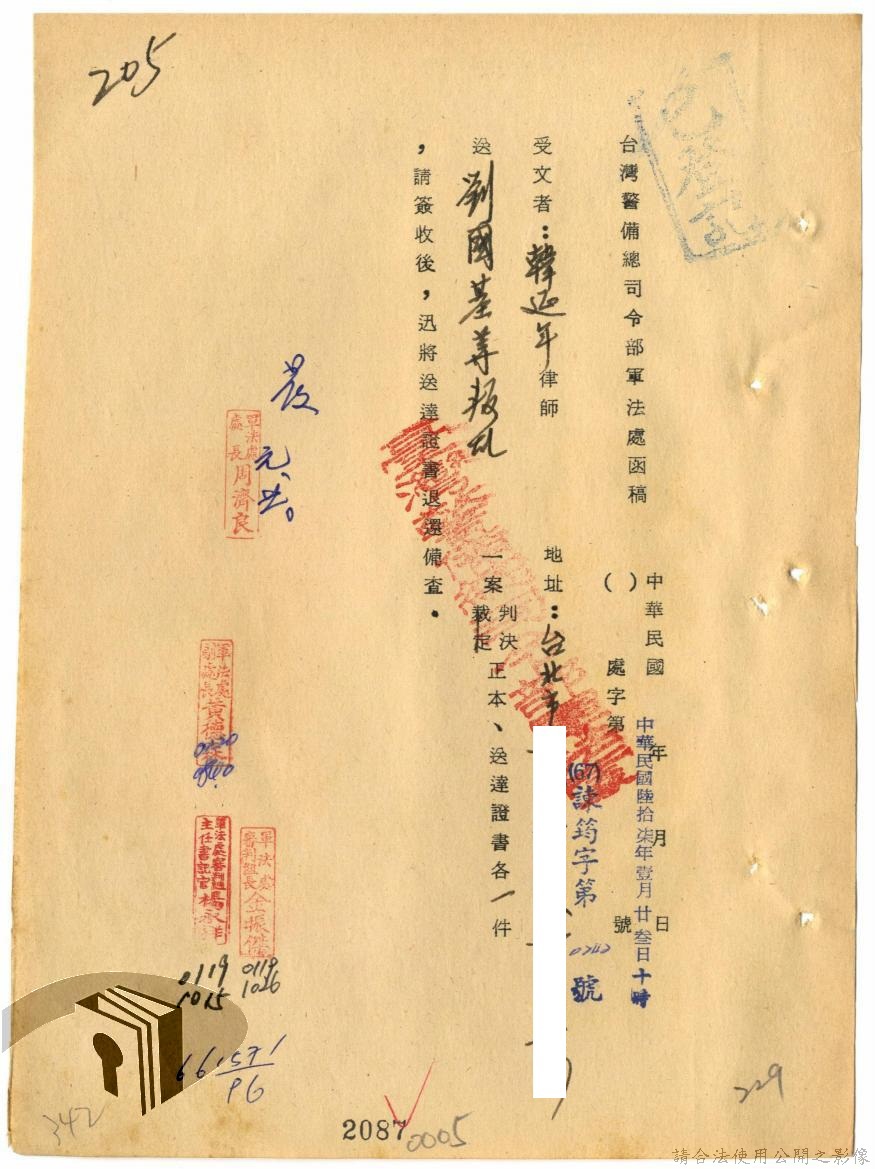 205
已登記
台灣警備總司令部軍法處函稿
中華民國 年 月 日
( ) 處字第 號
中華民國陸拾柒年壹月廿叁日十時
(67)諫筠字第
號
受文者：韓延年律師
地址：台北市
送劉國基等叛乱一案判決裁定正本、送達證書各一件
，請簽收後，迅將送達證書退還備查。
發
元、廿。
軍法處
處長周濟良
軍法處
副處長黃德
軍法處
審判組長金振傑
0119
1026
軍法處審判組
主任書記官楊永祥
0119
1015
661571
96
342
2087
0005
229
請合法使用公開之影像